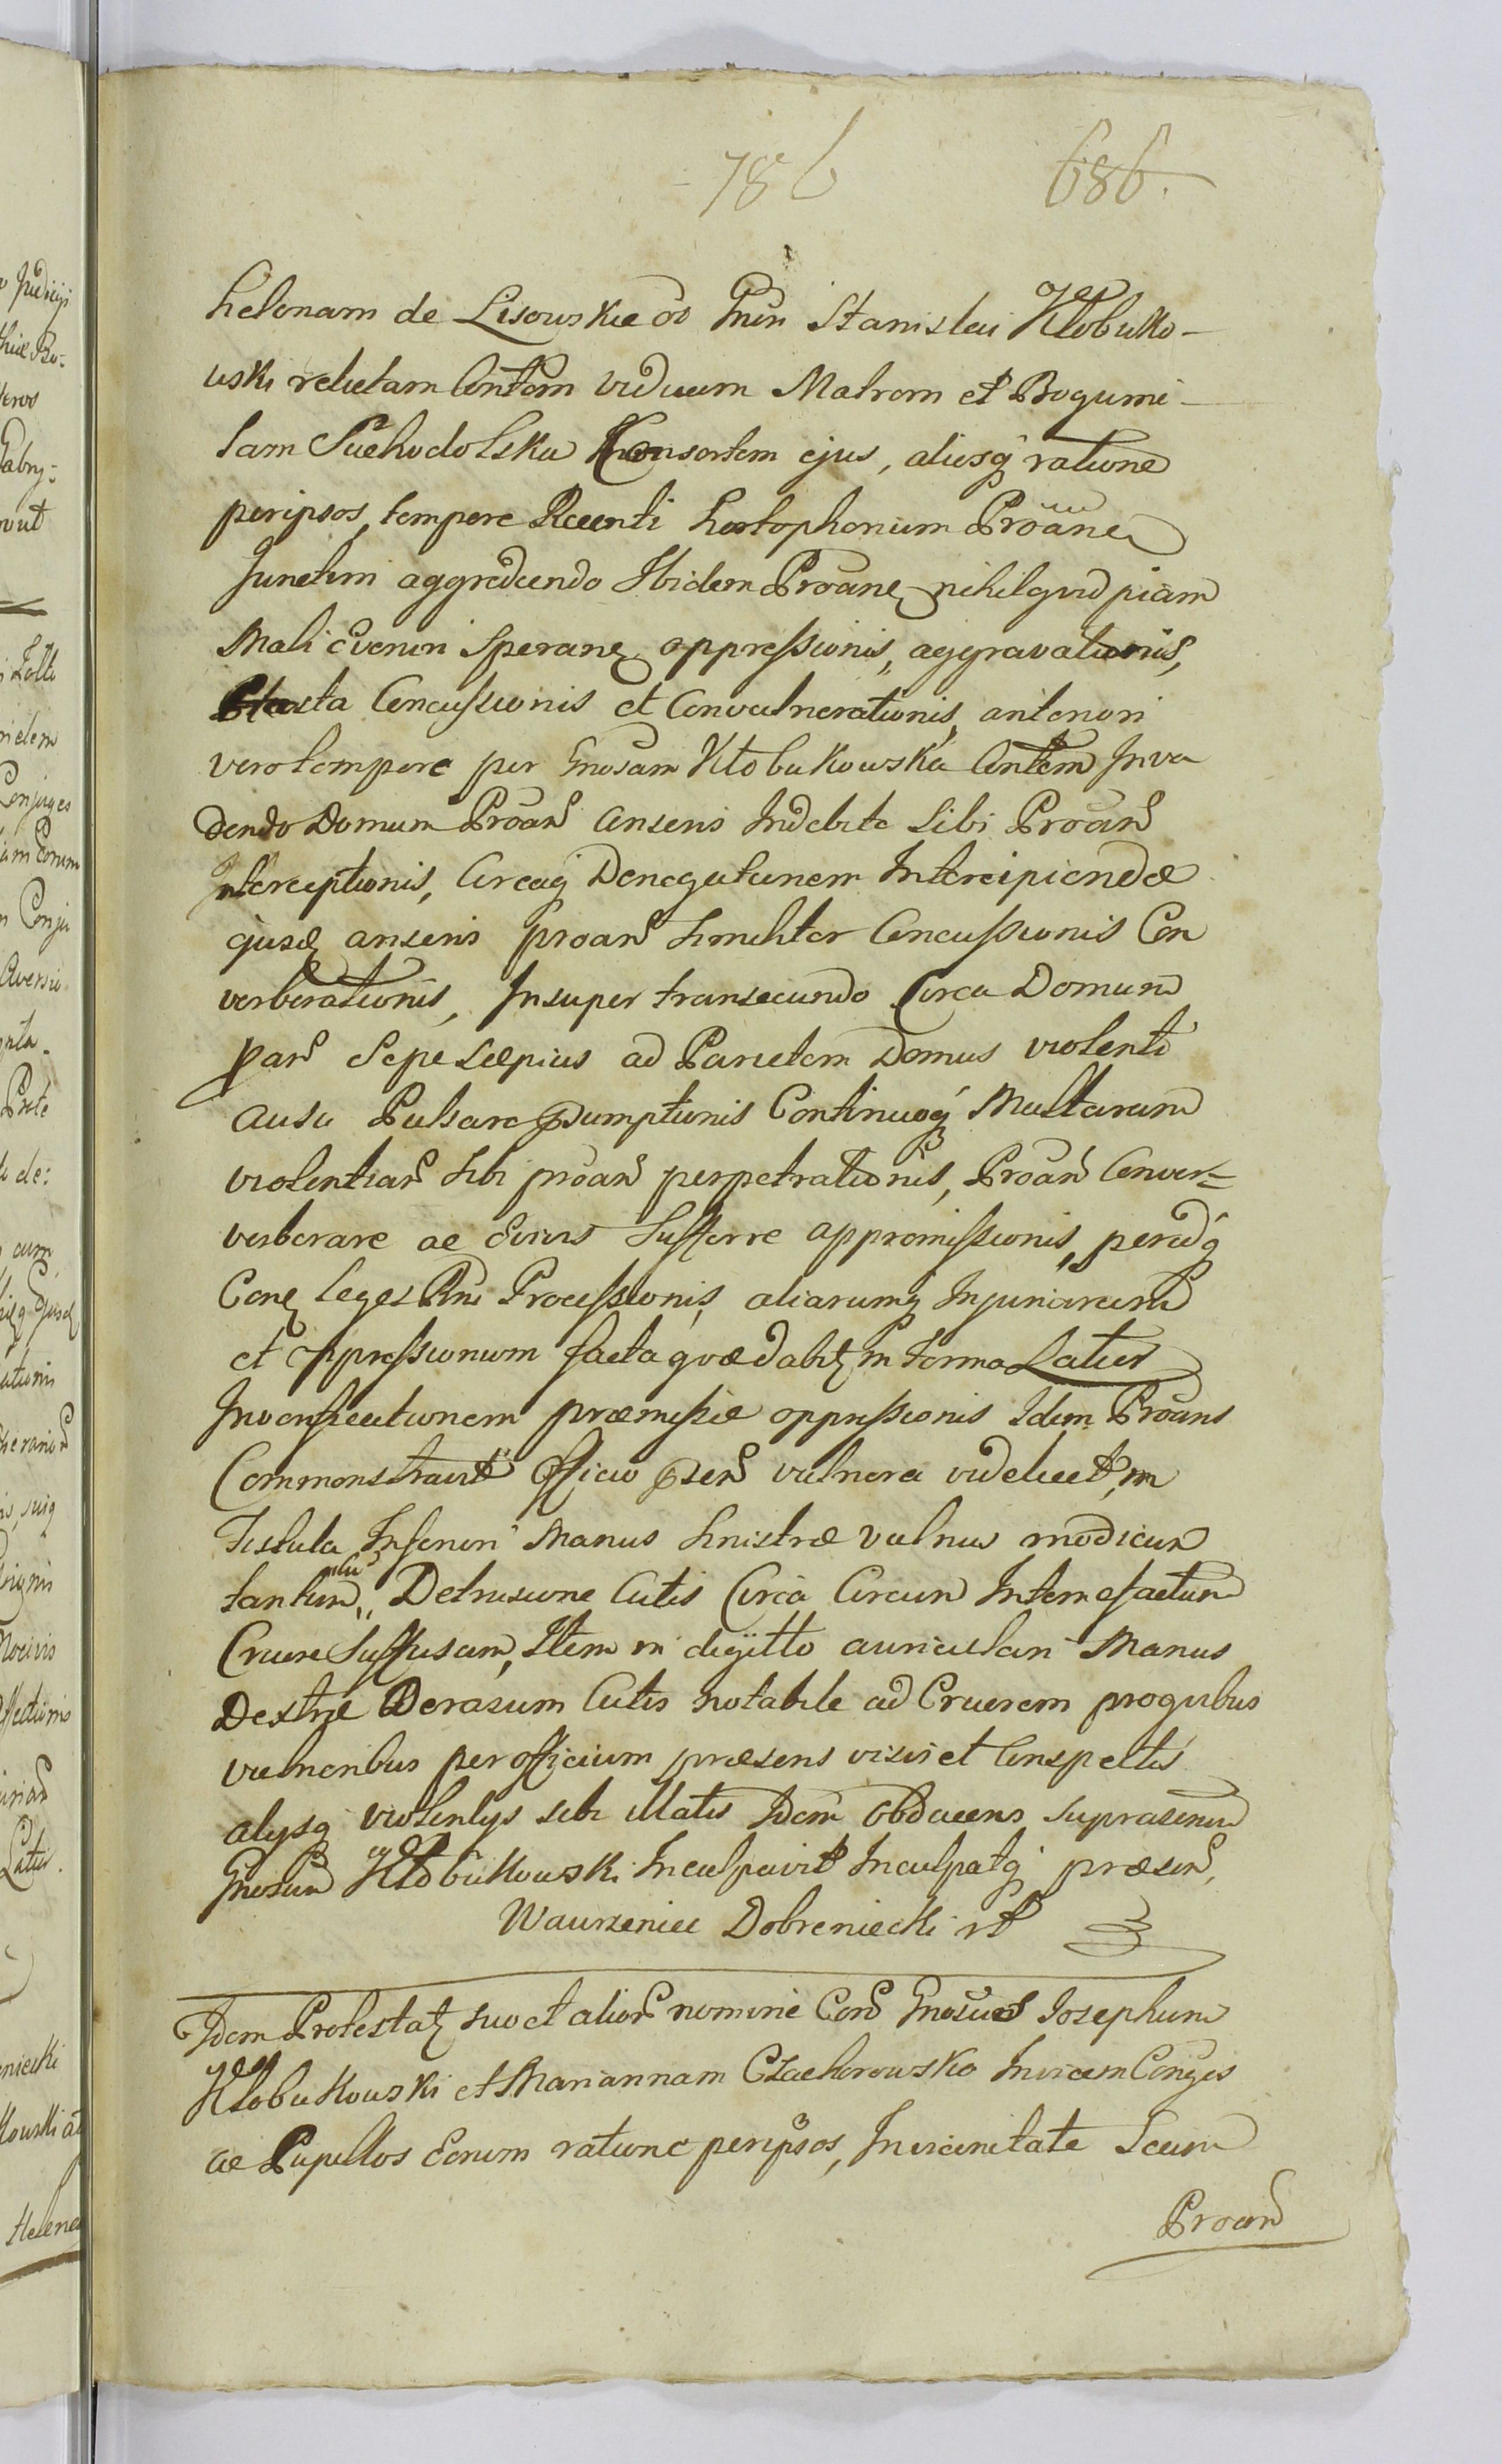 786 686.
Helenam de Lisowskie Gnsi Stanislai Kłobuko-
wski relictam Contem viduam Matrem et Bogumi-
lam Suchodolska Consortem ejus, aliosq ratione
peripsos, tempore Recenti Proane
Junctim aggrediendo Ibidem Proane nihilquidpiam
Mali Evenin Sperane oppressionis, aggravationis,
Concussionis et Convulnerationis, anteriori
vero tempore per Gnosam Kłobukowska Contem Inva
dendo Domum Proan Anseris Indebite Sibi Proan
Interceptionis, Circaq Denegationem Intercipiendæ
ejusd anseris proan Similiter Concussionis Con
verberationis, Insuper transeeundo Circa Domum
Pan Sepe Sæpius ad Parietem Domus violenti
ausu Pulsare psumptionis Continuoq Multarum
violentiar Sibi proan perpetrationis, Proan Conver=
verberare ac Sufferre appromissionis, peridq
Cone leges Rni Processionis, aliarumq Injuriarum
et oppressionum facta quæ dabit in terma Latius
In præmissæ oppressionis Idem Proans
Commonstravit Officio psen vulnera videlicet, in
Fistula Inferiori Manus Sinistræ vulnus modicum
tantum, Detrusione Cutis Circa Circum Intemefactum
Cruore Suffusam, Item in digitto auriculari Manus
Dextræ Derasum Cutis notabile ad Cruorem proquibus
vulneribus per officium præsens visis et Conspectis
alysq violentys sibi illatis Idem Obducens suprascrium
Gnosum Kłobukowski Inculpavit Inculpatq præsen,
Wawrzeniec Dobreniecki
Idem Protestat suo et alior nomine Con Gnosues Josephum
Kłobukowski et Mariannam Czachorowska Invicem Conges
ac Pupillos Eorum ratione peripsos, In vicinitate Secum
Proan